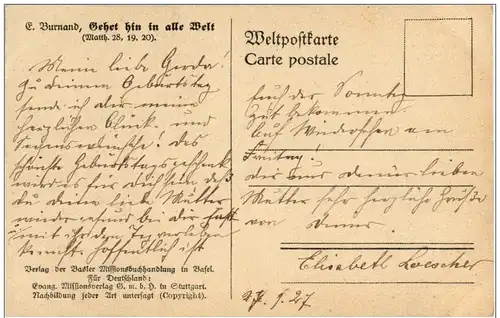 E. Burnand, Gehet hin in alle Welt
(Matth. 28, 19. 20).
Meine liebe Gerda!
Zu deinem Geburtstag
send ich dir meine
herzlichen Glück- und
Segenswünsche! Das
schönste Geburtstagsgeschenk
wird es für dich sein daß
du deine liebe Mutter
wieder gesund bei dir hast
u mit ihr den Tag verleben
kannst. Hoffentlich ist
Verlag der Basler Missionsbuchhandlung in Basel.
Für Deutschland:
Evang. Missionsverlag G. m. b. H. in Stuttgart.
Nachbildung jeder Art untersagt (Copyright).
Weltpostkarte
Carte postale
euch der Sonntag
gut bekommen
Auf Wiedersehen am
Freitag!
dir und deiner lieben
Mutter sehr herzliche Grüße
von
Elisabeth Loescher
27. 9. 27